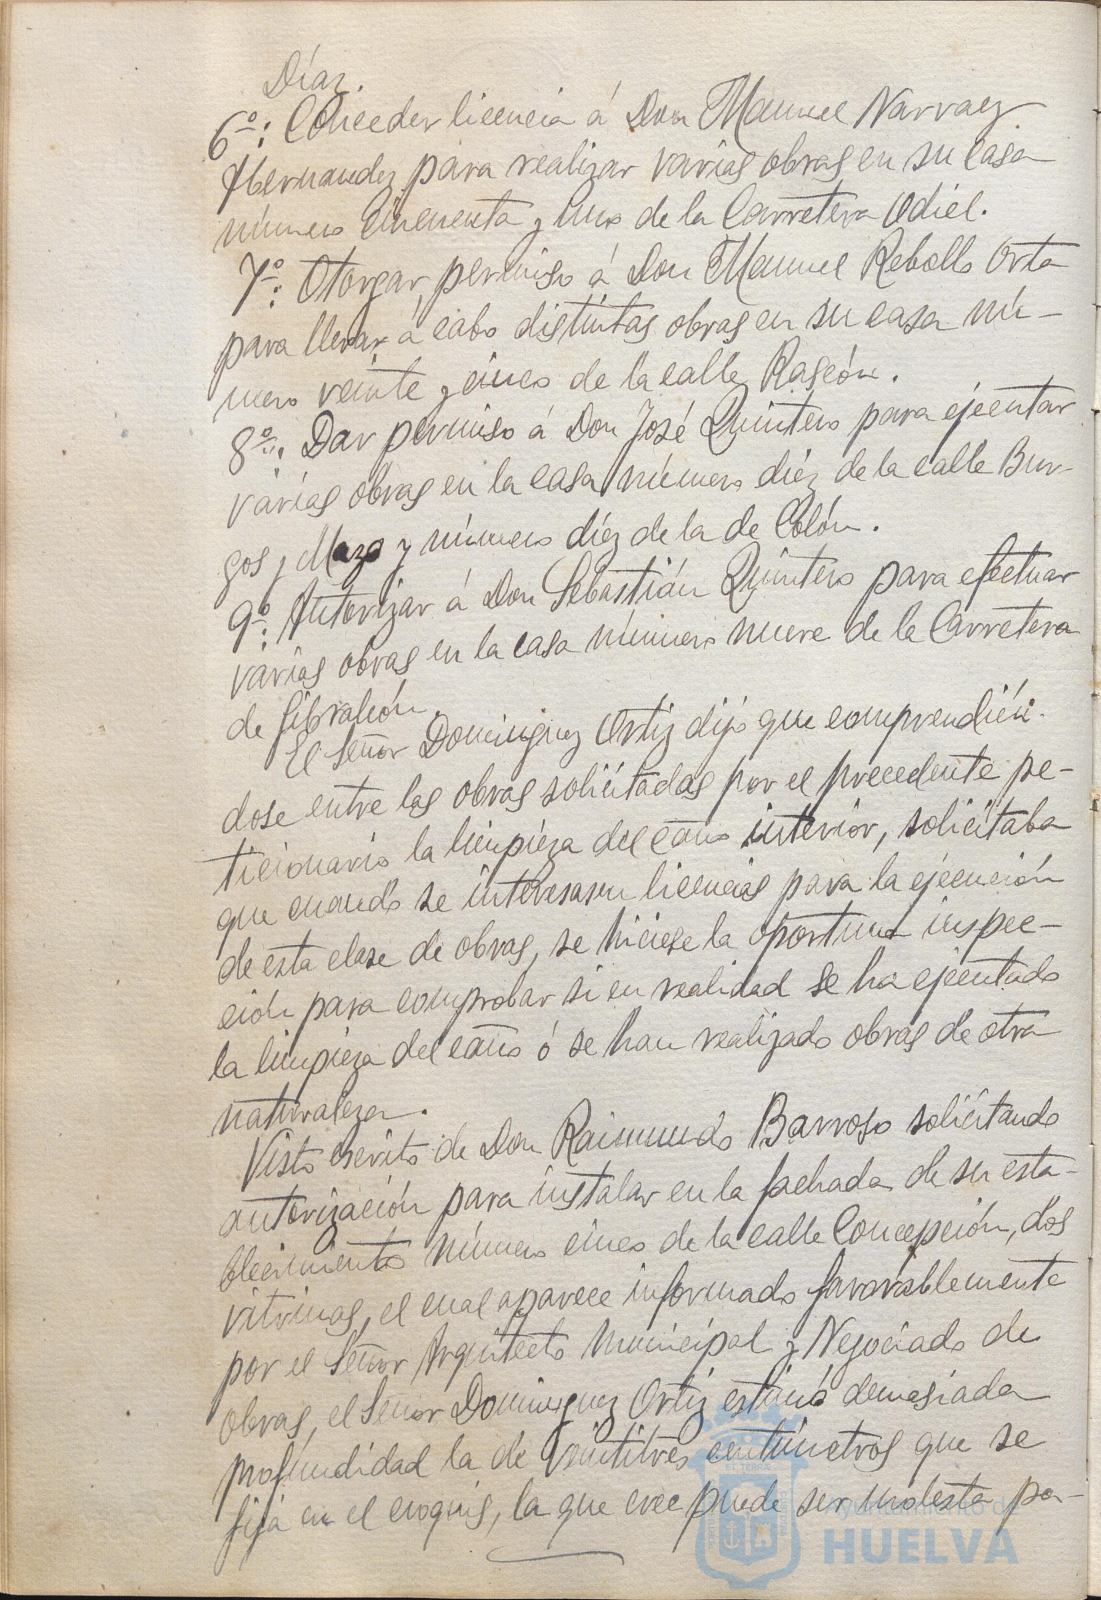 Díaz.
6º: Conceder licencia á Don Manuel Narvaez
Hernandez para realizar varias obras en su casa
número cincuenta y uno de la Carretera Odiel.
7º: Otorgar permiso á Don Manuel Rebollo Orta
para llevar á cabo distintas obras en su casa nú-
mero veinte y cinco de la calle Rascón.
8º: Dar permiso á Don José Quintero para ejecutar
várias obras en la casa número diez de la calle Bur-
gos y Mazo y número diez de la de Colón.
9º: Autorizar á Don Sebastián Quintero para efectuar
várias obras en la casa número nueve de la Carretera
de Gibraleón.
El Señor Dominguez Ortiz dijo que comprendién-
dose entre las obras solicitadas por el precedente pe-
ticionario la limpieza del caño interior, solicitaba
que cuando se interesasen licencias para la ejecución
de esta clase de obras, se hiciese la oportuna inspec-
ción para comprobar si en realidad se ha ejecutado
la limpieza del caño ó se han realizado obras de otra
naturaleza.
Visto escrito de Don Raimundo Barroso solicitando
autorización para instalar en la fachada de su esta-
blecimiento número cinco de la calle Concepción, dos
vitrinas, el cual aparece informado favorablemente
por el Señor Arquitecto Municipal y Negociado de
obras, el Señor Dominguez Ortiz estimó demasiada
profundidad la de veintitres centimetros que se
fija en el croquis, la que cree puede ser molesta pa-
Ayuntamiento de
HUELVA